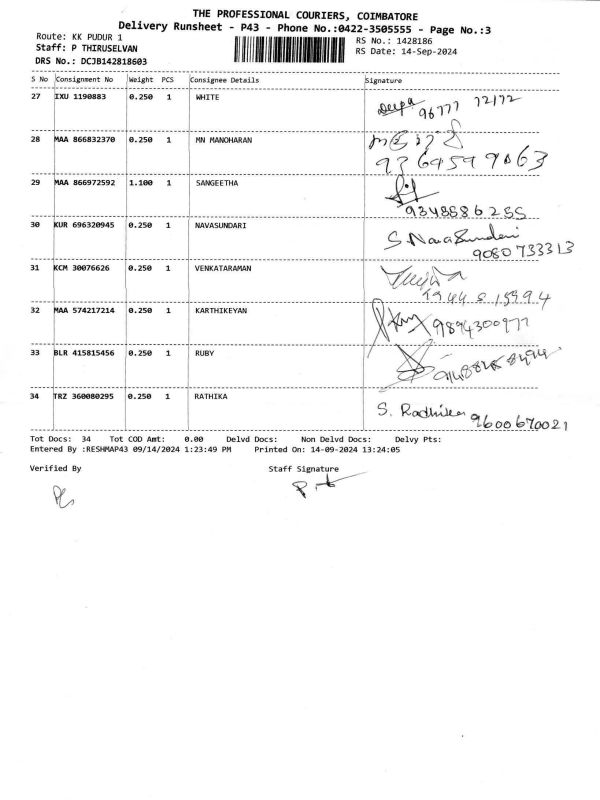 THE PROFESSIONAL COURIERS, COIMBATORE
Delivery Runsheet - P43 - Phone No.:0422-3505555 - Page No.:3
Route: KK PUDUR 1 RS No.: 1428186
Staff: P THIRUSELVAN RS Date: 14-Sep-2024
DRS No.: DCJB142818603
S No Consignment No Weight PCS Consignee Details Signature
27 IXU 1190883 0.250 1 WHITE Deepa 96777 72172
28 MAA 866832370 0.250 1 MN MANOHARAN
29 MAA 866972592 1.100 1 SANGEETHA
30 KUR 696320945 0.250 1 NAVASUNDARI S. Nava Sundari
9080733313
31 KCM 30076626 0.250 1 VENKATARAMAN
32 MAA 574217214 0.250 1 KARTHIKEYAN 9894300977
33 BLR 415815456 0.250 1 RUBY
34 TRZ 360080295 0.250 1 RATHIKA S. Radhika 9600670021
Tot Docs: 34 Tot COD Amt: 0.00 Delvd Docs: Non Delvd Docs: Delvy Pts:
Entered By :RESHMAP43 09/14/2024 1:23:49 PM Printed On: 14-09-2024 13:24:05
Verified By Staff Signature